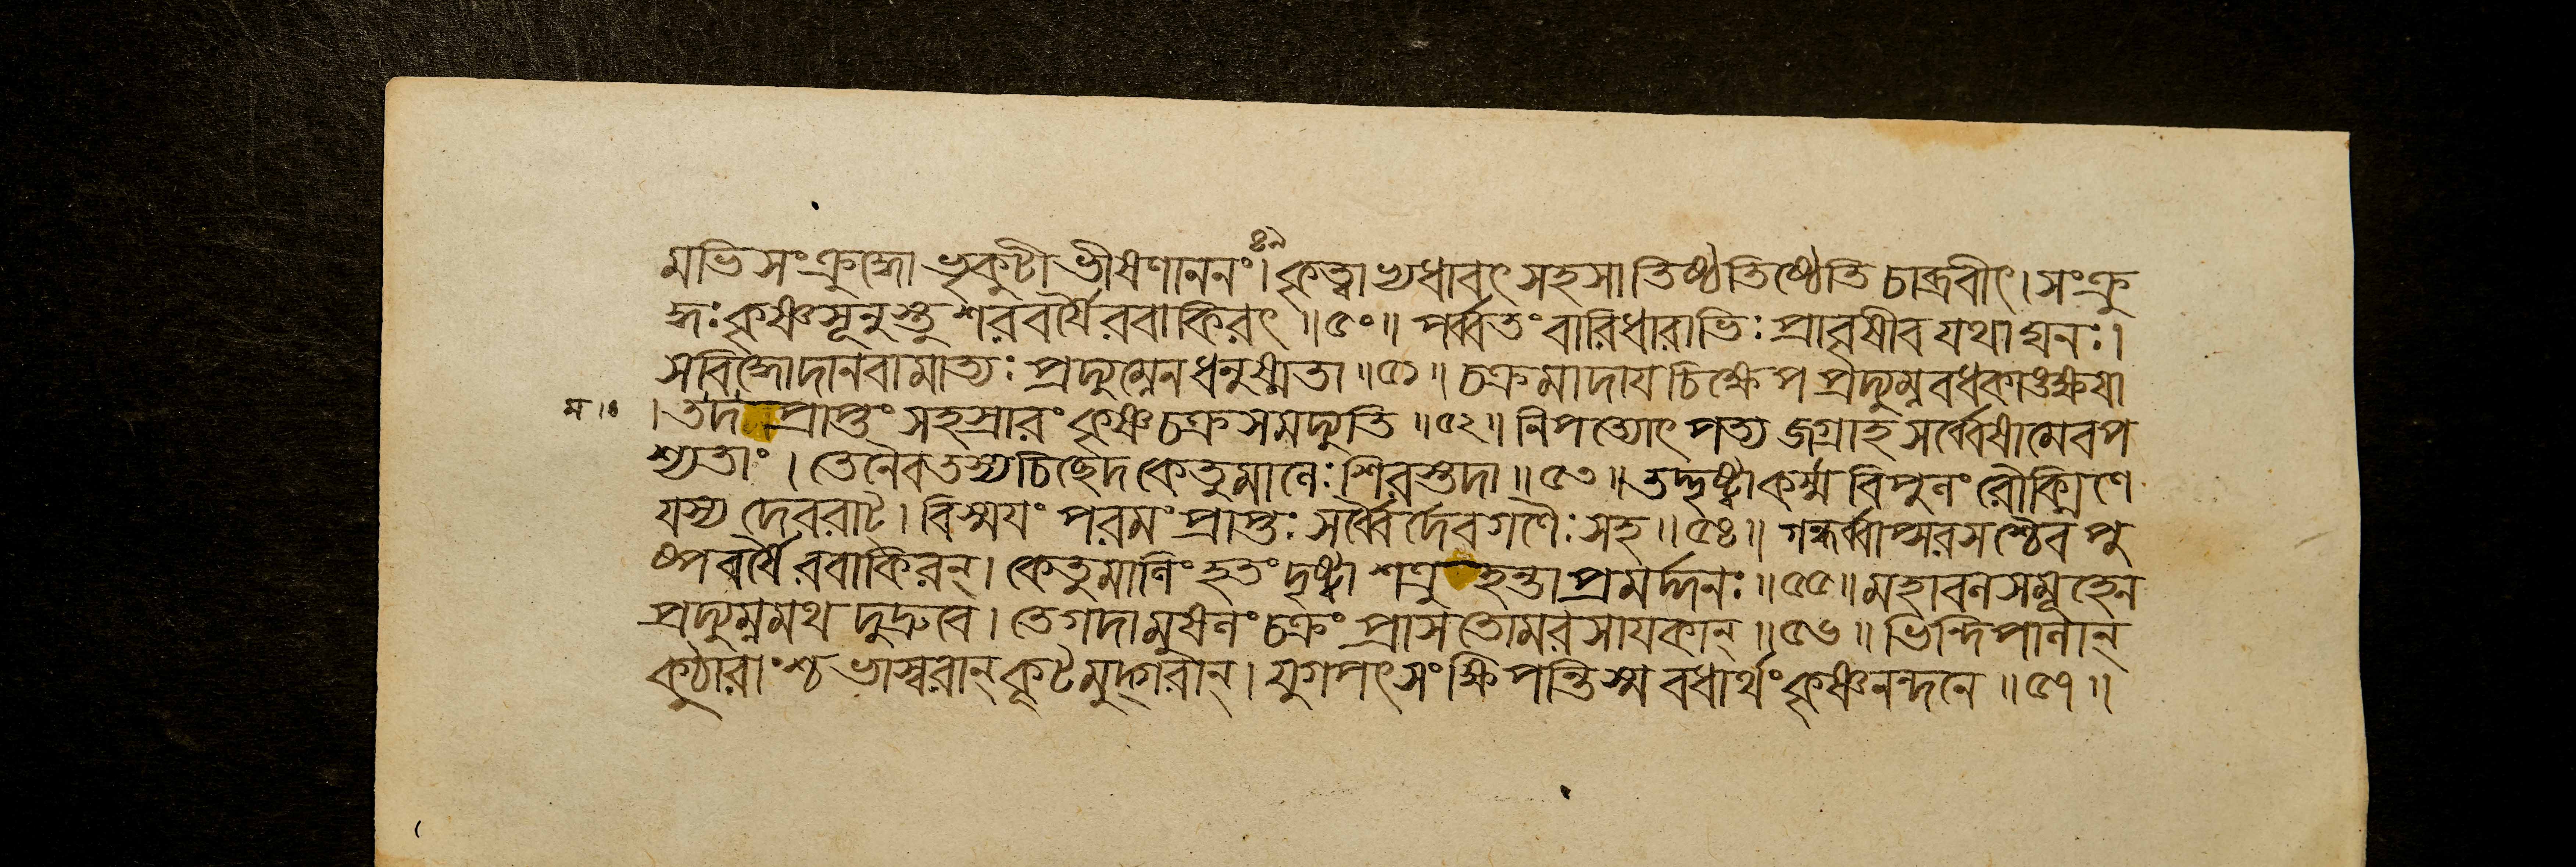 মভিসংক্রুদ্ধো ভৃকুটী ভীষণাননং। ৪৯
কৃত্বাভ্যধাবৎ সহসা তিষ্ঠতিষ্ঠেতি চাব্রবীৎ। সংক্রু
দ্ধঃ কৃষ্ণসূনুস্তু শরবর্ষৈরবাকিরৎ ॥৫০॥ পর্ব্বতং বারিধারাভিঃ প্রাবৃষীব যথা ঘনঃ।
স বিদ্ধো দানবামাত্যঃ প্রদ্যুম্নেন ধনুষ্মতা ॥৫১॥ চক্রমাদায চিক্ষেপ প্রদ্যুম্নবধকাঙ্ক্ষযা
। তদপ্রাপ্তং সহস্রারং কৃষ্ণচক্রসমদ্যুতি ॥৫২॥ নিপত্যোৎপত্য জগ্রাহ সর্ব্বেষামেব প
শ্যতাং। তেনৈব তস্য চিচ্ছেদ কেতুমালেঃ শিরস্তদা ॥৫৩॥ তদ্দৃষ্ট্বা কর্ম্ম বিপুলং রৌক্মিণে
যস্য দেবরাট্। বিস্মযং পরমং প্রাপ্তঃ সর্ব্বৈর্দেবগণৈঃ সহ ॥৫৪॥ গন্ধর্ব্বাপ্সরসশ্চৈব পু
ষ্পবর্ষৈরবাকিরন্। কেতুমালিং হতং দৃষ্ট্বা শত্রুহন্তা প্রমর্দ্দনঃ ॥৫৫॥ মহাবলসমূহেন
প্রদ্যুম্নমথ দুদ্রুবে। তে গদামুষলং চক্রং প্রাসতোমরসাযকান্ ॥৫৬॥ ভিন্দিপালান্
কুঠারাংশ্চ ভাস্বরান্ কূটমুদ্গরান্। যুগপৎ সংক্ষিপন্তি স্ম বধার্থং কৃষ্ণনন্দনে ॥৫৭॥